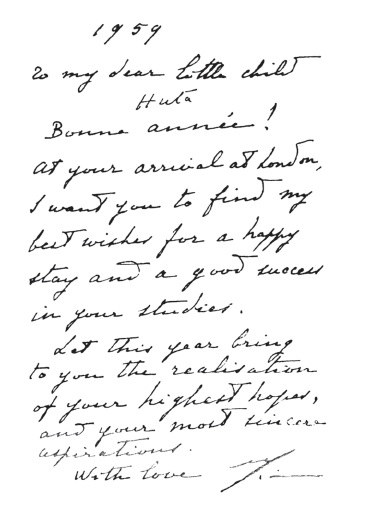 1959
To my dear little child
Huta
Bonne année!
At your arrival at London,
I want you to find my
best wishes for a happy
stay and a good success
in your studies.
Let this year bring
to you the realisation
of your highest hopes,
and your most sincere
aspirations.
With love